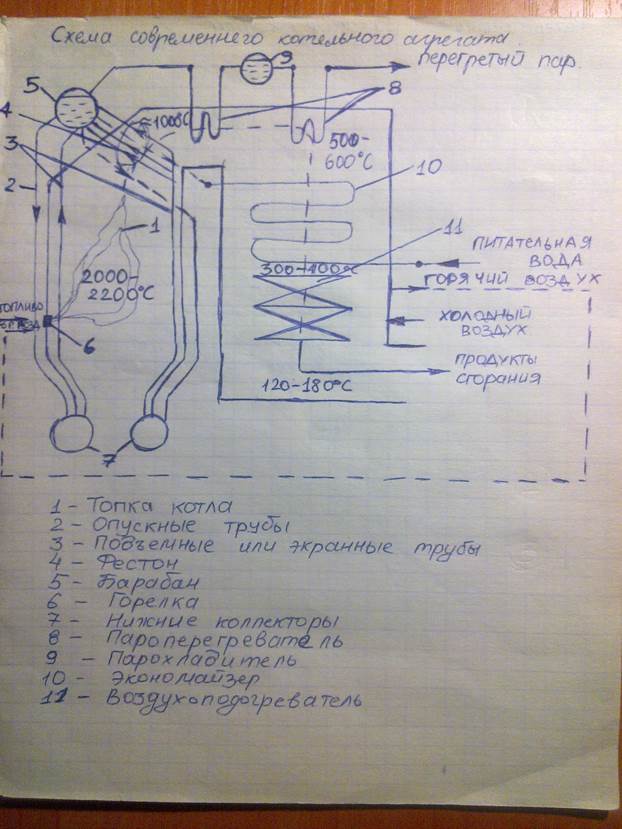 Схема современнего котельного агрегата.
5
9
перегретый пар.
4
≈1000°С
8
3
500-
600°С
2
10
1
11
ПИТАТЕЛЬНАЯ
ВОДА
2000-
2200°С
300-400°С
ГОРЯЧИЙ ВОЗДУХ
ТОПЛИВО
ХОЛОДНЫЙ
ВОЗДУХ
6
ПРОДУКТЫ
сгорания
120-180°С
7
1 - Топка котла
2 - Опускные трубы
3 - Подъемные или экранные трубы
4 - Фестон
5 - Барабан
6 - Горелка
7 - Нижние коллекторы
8 - Пароперегреватель
9 - Парохладитель
10 - Экономайзер
11 - Воздухоподогреватель